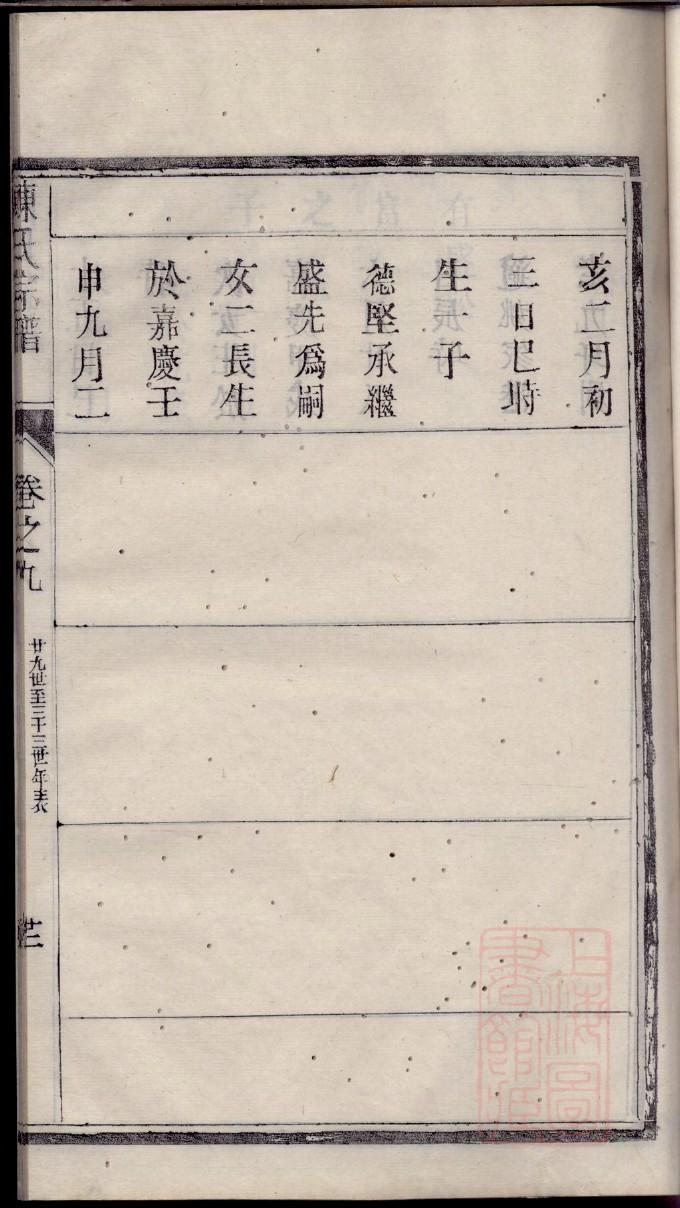 亥二月初
三日巳時
生一子
德堅承繼
盛先爲嗣
女二長生
於嘉慶壬
申九月二
陳氏宗譜
卷之九
廿九世至三十三世年表
上海圖書館藏